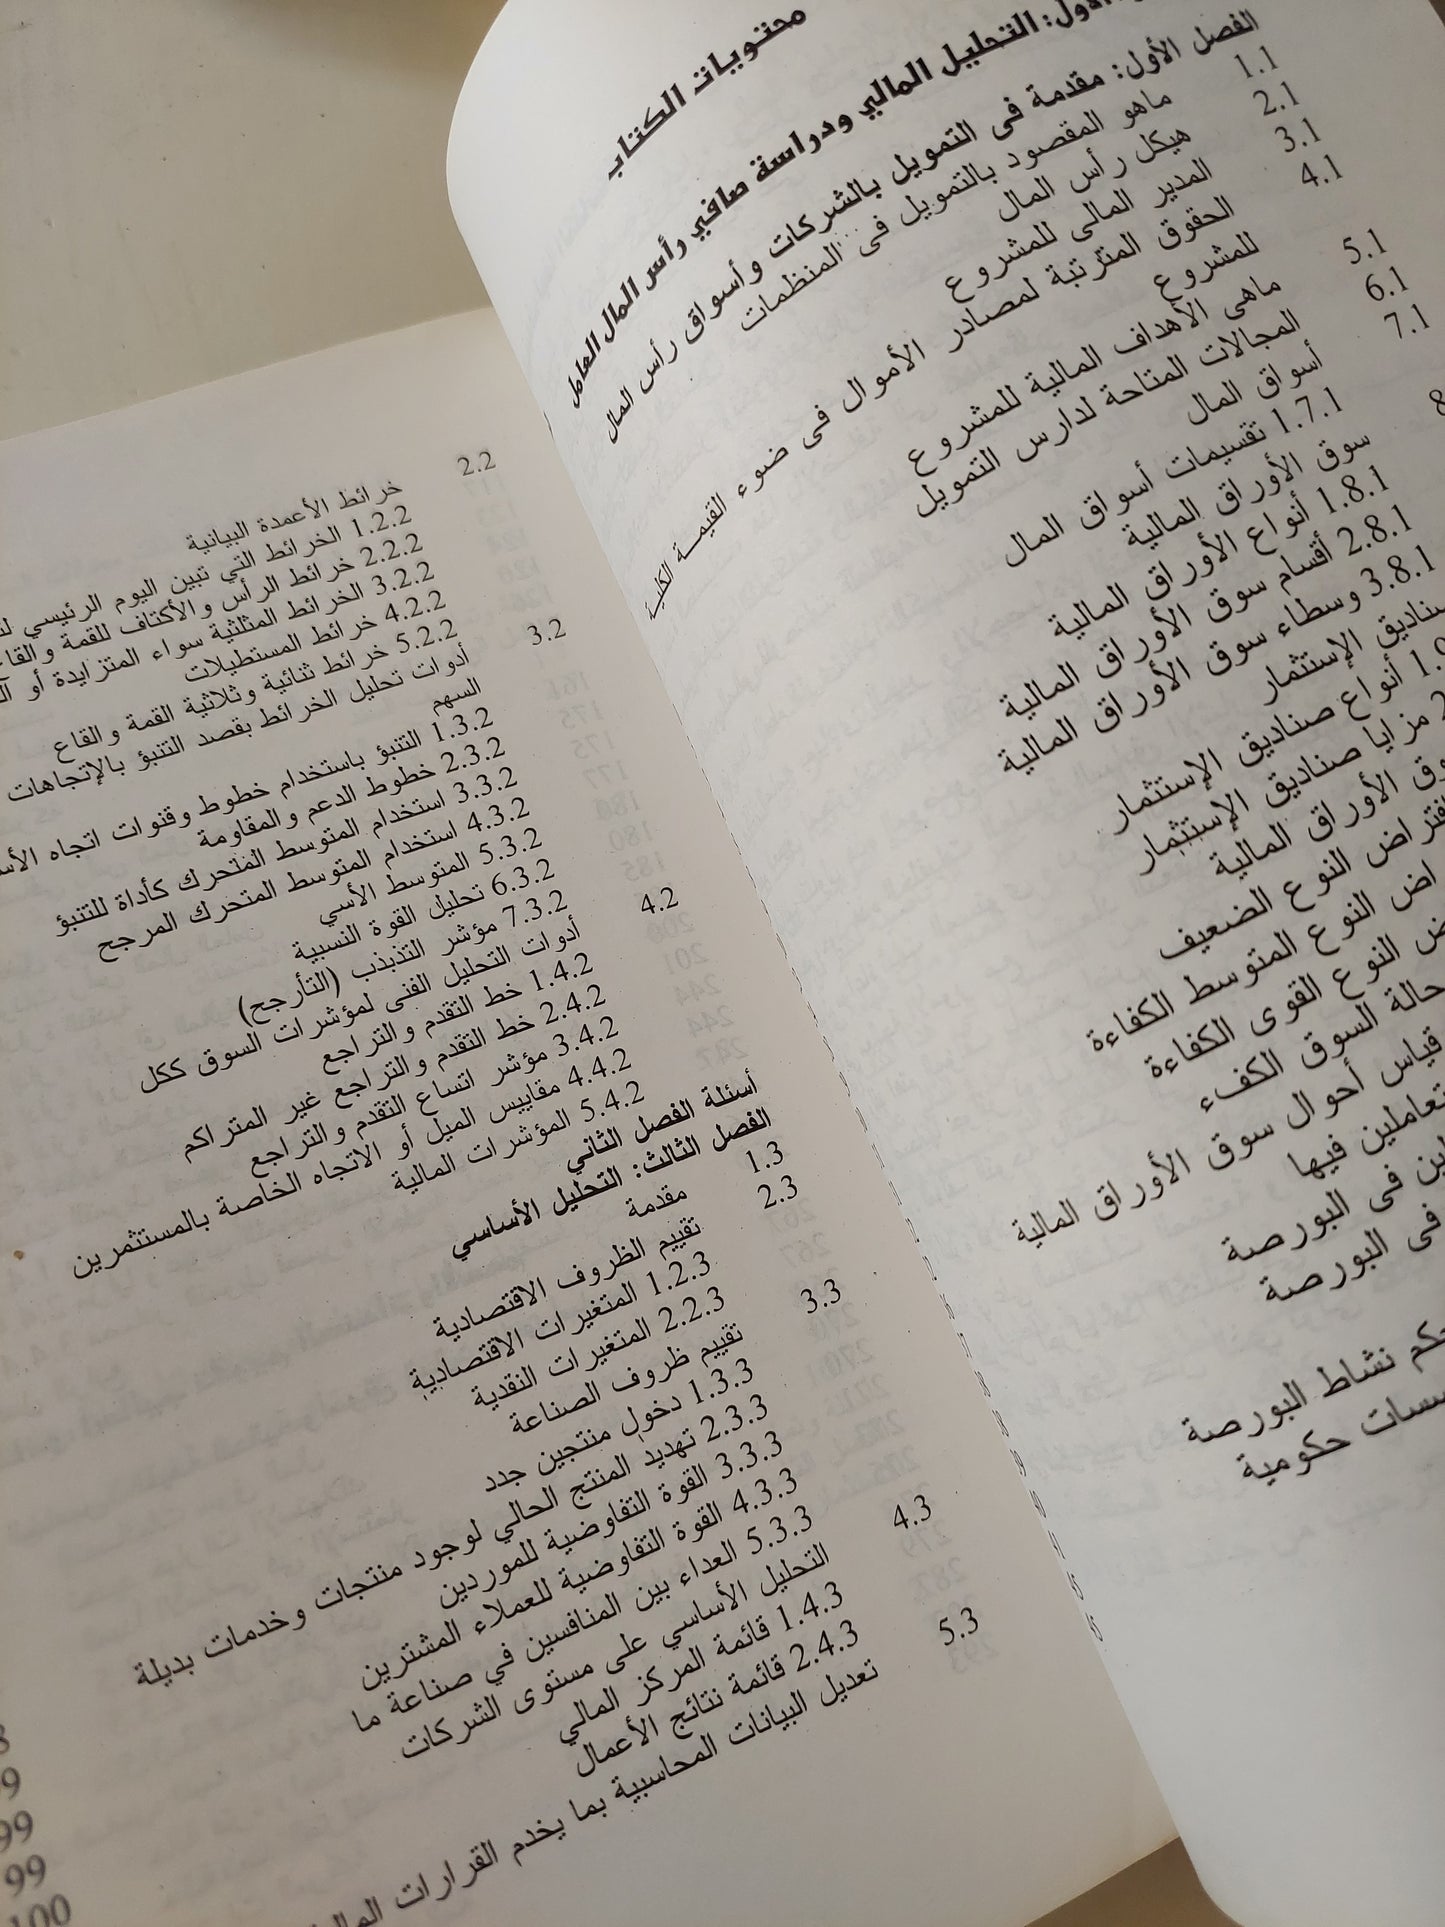 محتويات الكتاب
الأول: التحليل المالي ودراسة صافي رأس المال العامل
الفصل الأول: مقدمة فى التمويل بالشركات وأسواق رأس المال
1.1 ماهو المقصود بالتمويل فى المنظمات
2.1 هيكل رأس المال
3.1 المدير المالى للمشروع
4.1 الحقوق المترتبة لمصادر الأموال فى ضوء القيمة الكلية
للمشروع
5.1 ماهى الأهداف المالية للمشروع
6.1 المجالات المتاحة لدارس التمويل
7.1 أسواق المال
1.7.1 تقسيمات أسواق المال
8 سوق الأوراق المالية
1.8.1 أنواع الأوراق المالية
2.8.1 أقسام سوق الأوراق المالية
3.8.1 وسطاء سوق الأوراق المالية
صناديق الإستثمار
أنواع صناديق الإستثمار
مزايا صناديق الإستثمار
الأوراق المالية
النوع الضعيف
النوع المتوسط الكفاءة
النوع القوى الكفاءة
حالة السوق الكفء
قياس أحوال سوق الأوراق المالية
فيها
فى البورصة
فى البورصة
نشاط البورصة
حكومية
2.2 خرائط الأعمدة البيانية
1.2.2 الخرائط التي تبين اليوم الرئيسي
2.2.2 خرائط الرأس والأكتاف للقمة
3.2.2 الخرائط المثلثية سواء المتزايدة أو
4.2.2 خرائط المستطيلات
5.2.2 خرائط ثنائية وثلاثية القمة والقاع
3.2 أدوات تحليل الخرائط بقصد التنبؤ بالإتجاهات
السهم
1.3.2 التنبؤ باستخدام خطوط وقنوات اتجاه
2.3.2 خطوط الدعم والمقاومة
3.3.2 استخدام المتوسط المتحرك كأداة للتنبؤ
4.3.2 استخدام المتوسط المتحرك المرجح
5.3.2 المتوسط الأسي
6.3.2 تحليل القوة النسبية
7.3.2 مؤشر التذبذب (التأرجح)
4.2 أدوات التحليل الفنى لمؤشرات السوق ككل
1.4.2 خط التقدم والتراجع
2.4.2 خط التقدم والتراجع غير المتراكم
3.4.2 مؤشر اتساع التقدم والتراجع
4.4.2 مقاييس الميل أو الاتجاه الخاصة بالمستثمرين
5.4.2 المؤشرات المالية
أسئلة الفصل الثاني
الفصل الثالث: التحليل الأساسي
1.3 مقدمة
2.3 تقييم الظروف الاقتصادية
1.2.3 المتغيرات الاقتصادية
2.2.3 المتغيرات النقدية
3.3 تقييم ظروف الصناعة
1.3.3 دخول منتجين جدد
2.3.3 تهديد المنتج الحالي لوجود منتجات وخدمات بديلة
3.3.3 القوة التفاوضية للموردين
4.3.3 القوة التفاوضية للعملاء المشترين
5.3.3 العداء بين المنافسين في صناعة ما
4.3 التحليل الأساسي على مستوى الشركات
1.4.3 قائمة المركز المالي
2.4.3 قائمة نتائج الأعمال
5.3 تعديل البيانات المحاسبية بما يخدم القرارات
99
99
100